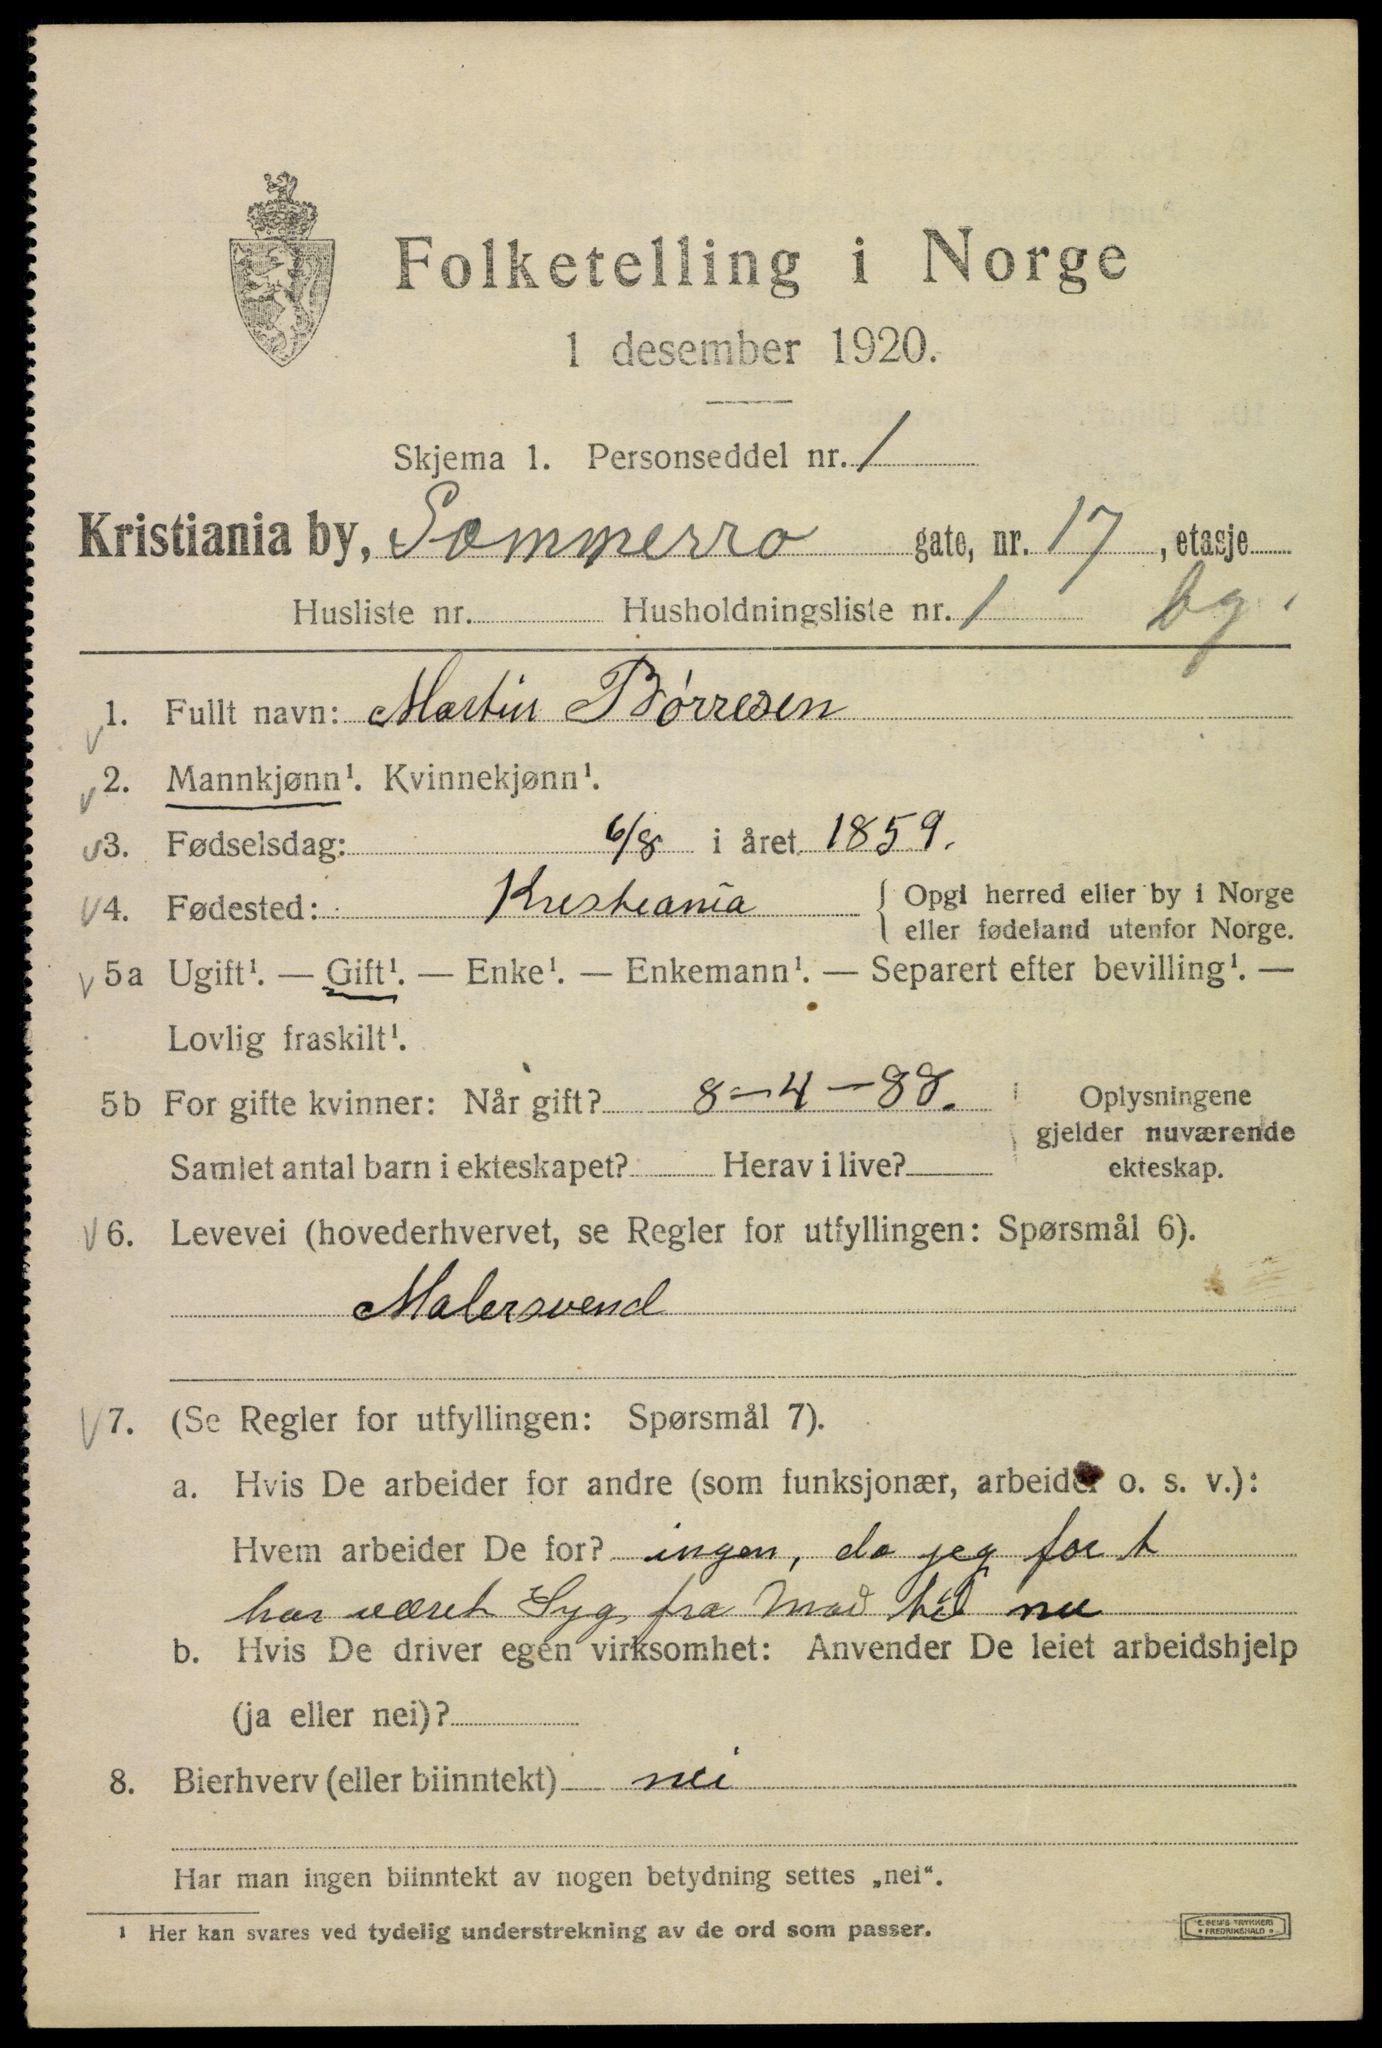 Folketelling i Norge
1 desember 1920.
Skjema 1. Personseddel nr. 1
Kristiania by, Sommerro gate, nr. 17, etasje
Husliste nr. Husholdningsliste nr. 1 bg.
1. Fullt navn: Martin Børresen
2. Mannkjønn¹. Kvinnekjønn¹.
3. Fødselsdag: 6/8 i året 1859.
4. Fødested: Kristiania { Opgi herred eller by i Norge
eller fødeland utenfor Norge.
5a Ugift¹. — Gift¹. — Enke¹. — Enkemann¹. — Separert efter bevilling¹. —
Lovlig fraskilt¹.
5b For gifte kvinner: Når gift? 8-4-88. Oplysningene
gjelder nuværende
Samlet antal barn i ekteskapet? Herav i live? ekteskap.
6. Levevei (hovederhvervet, se Regler for utfyllingen: Spørsmål 6).
Malersvend
7. (Se Regler for utfyllingen: Spørsmål 7).
a. Hvis De arbeider for andre (som funksjonær, arbeider o. s. v.):
Hvem arbeider De for? ingen, da jeg for t
har været Syg fra Mai til nu
b. Hvis De driver egen virksomhet: Anvender De leiet arbeidshjelp
(ja eller nei)?
8. Bierhverv (eller biinntekt) nei
Har man ingen biinntekt av nogen betydning settes „nei“.
¹ Her kan svares ved tydelig understrekning av de ord som passer.
E. SEM'S TRYKKERI
• FREDRIKSHALD •